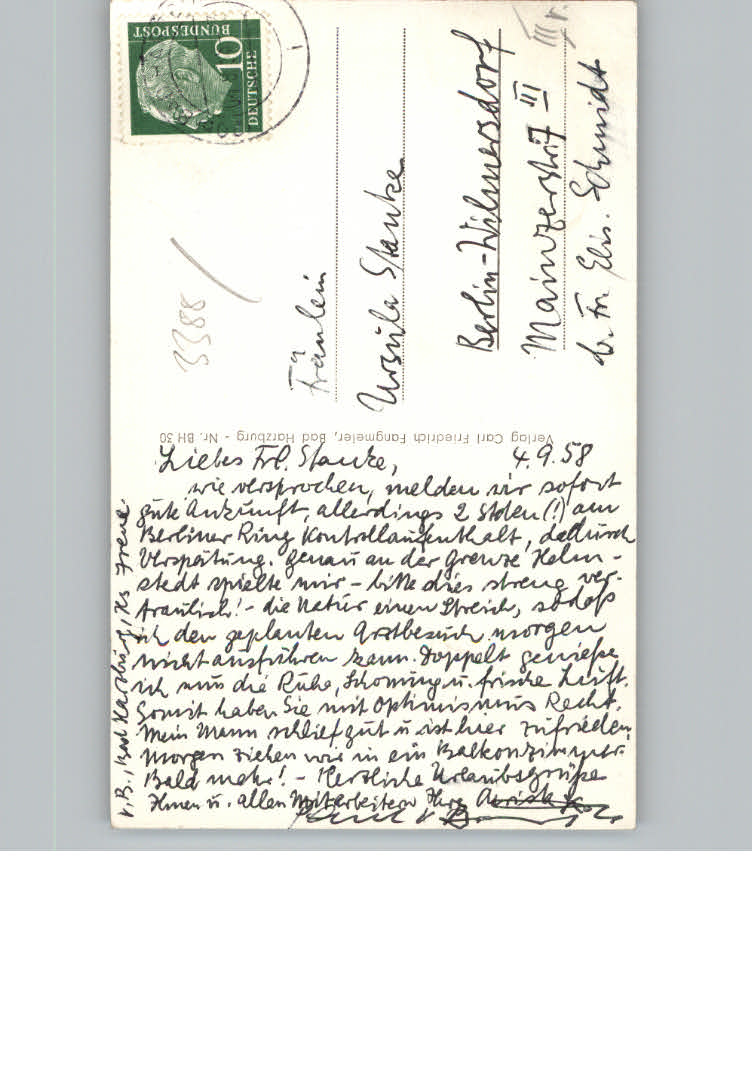 DEUTSCHE
BUNDESPOST
10
3388
Fräulein
Ursula Stanke
Berlin-Wilmersdorf
Mainzerstr. 7 III
b. Fr. Elis. Schmidt
III r.
Verlag Carl Friedrich Fangmeier, Bad Harzburg - Nr. BH 30
Liebes Frl. Stanke, 4.9.58
wie versprochen, melden wir sofort
gute Ankunft, allerdings 2 Stden (!) am
Berliner Ring Kontrollaufenthalt, dadurch
Verspätung. Genau an der Grenze Helm-
stedt spielte mir - bitte dies streng ver-
traulich! - die Natur einen Streich, sodaß
ich den geplanten Arztbesuch morgen
nicht ausführen kann. Doppelt genieße
ich nun die Ruhe, Schonung u. frische Luft.
Somit haben Sie mit Optimismus Recht.
Mein Mann schlief gut u. ist hier zufrieden.
Morgen ziehen wir in ein Balkonzimmer.
Bald mehr! - Herzliche Urlaubsgrüße
Ihnen u. allen Mitarbeitern Ihre
Bad Harzburg, Hs Irene